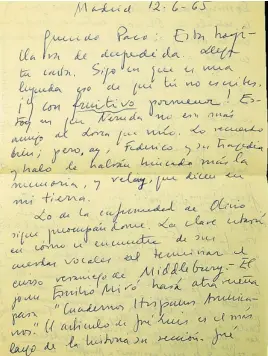 Madrid 12-6-65
Querido Paco: Esta hoji-
lla va de despedida. Llegó
tu carta. Sigo en que es una
leyenda eso de que tú no escribes.
¡Y con fruitivo pormenor! Es-
toy en que Neruda no es más
amigo al Lorca que mío. Lo recuerdo
bien; pero, ay, Federico, y su tragedia
y halo le habrán hincado más la
memoria, y velay, que dicen en
mi tierra.
Lo de la enfermedad de Olivio
sigue preocupándome. La clave estará
en cómo se encuentre de sus
cuerdas vocales al terminar el
curso veraniego de Middlebury.- El
joven Emilio Miró hará otra reseña
para "Cuadernos Hispano America-
nos". El artículo de José Luis es el más
largo de la historia su sección. José